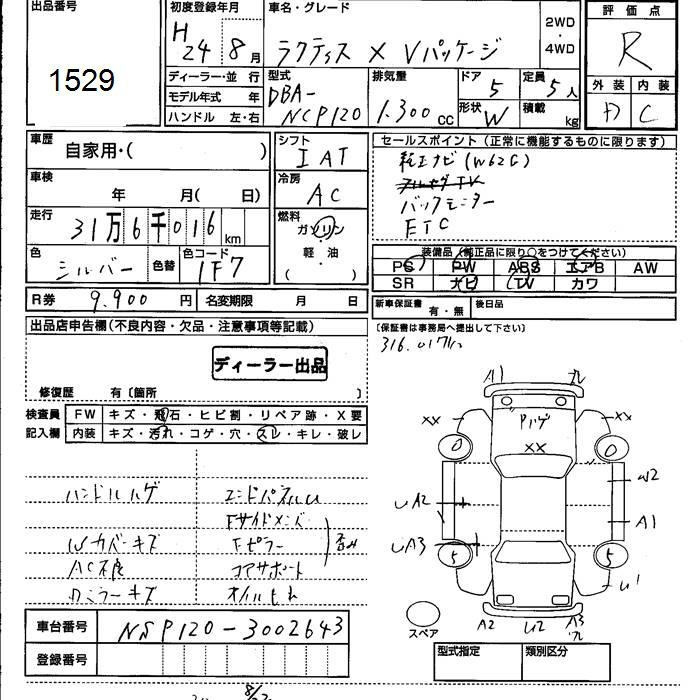 出品番号
1529
初度登録年月
H
24 8月
車名・グレード
ラクティス X Vパッケージ
2WD
・
4WD
評価点
R
外装 内装
D C
ディーラー・並行
モデル年式 年
ハンドル 左・右
型式
DBA-
NCP120
排気量
1.300 cc
ドア
5
形状 W
定員
5人
積載
kg
車歴
自家用・( )
車検
年 月( 日)
走行
31万6千016 km
色
シルバー
色替
色コード
1F7
シフト
IAT
冷房
AC
燃料
ガソリン
軽油
( )
セールスポイント(正常に機能するものに限ります)
純正ナビ(W62G)
フルセグTV
バックモニター
ETC
装備品(純正品に限り○をつけてください)
PS PW ABS エアB AW
SR ナビ TV カワ
R券 9.900 円
名変期限 月 日
新車保証書 有・無
後日品
出品店申告欄(不良内容・欠品・注意事項等記載)
(保証書は事務局へ提出して下さい)
ディーラー出品
修復歴 有〔箇所 〕
検査員 FW キズ・飛石・ヒビ割・リペア跡・X要
記入欄 内装 キズ・汚れ・コゲ・穴・スレ・キレ・破レ
ハンドルハゲ エンドパネルU
Fサイドメンバ
Wカバーキズ Fピラー
AC不良 コアサポート
Rミラーキズ オイルもれ
A1
XX
XX
Pハゲ
XX
0
0
UA2
W2
A1
UA3
5
5
U1
A2
U2
A3
スペア
車台番号 NSP120-3002643
登録番号
型式指定 類別区分